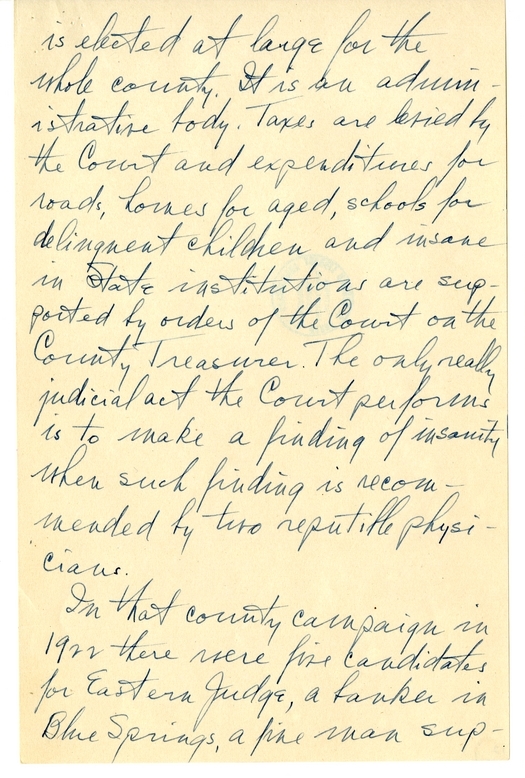 is elected at large for the
whole county. It is an admin-
istrative body. Taxes are levied by
the Court and expenditures for
roads, homes for aged, schools for
delinquent children and insane
in State institutions are sup-
ported by orders of the Court on the
County Treasurer. The only really
judicial act the Court performs
is to make a finding of insanity
when such finding is recom-
mended by two reputible physi-
cians.
In that county campaign in
1922 there were five candidates
for Eastern Judge, a banker in
Blue Springs, a fine man sup-